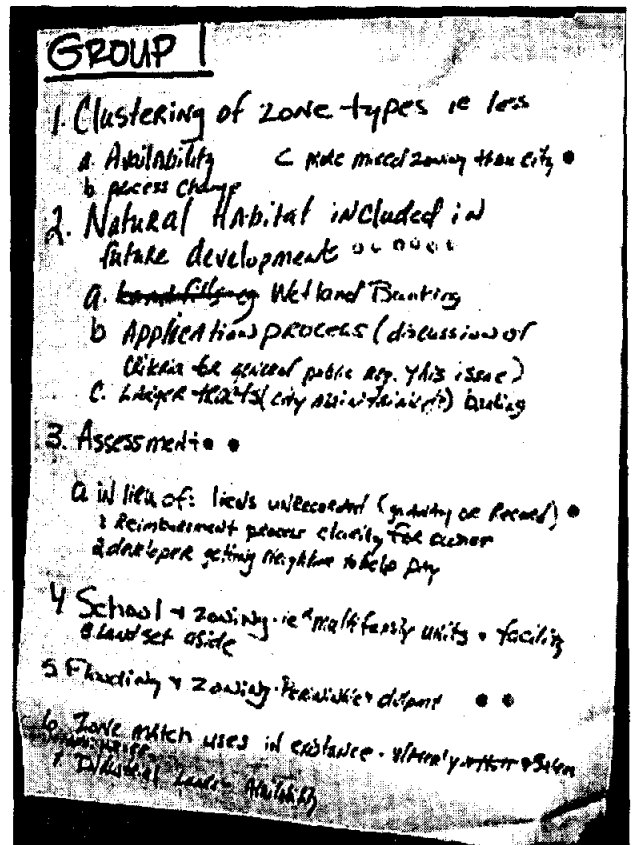 GROUP 1
1. Clustering of zone types ie less
a. Availability c more mixed zoning than city
b. process change
2. Natural Habitat included in
future development
a. Wetland Banking
b Application process (discussion of
criteria for general public reg. this issue)
c. Larger tracts (city) banking
3. Assessment
a in lieu of: liens unrecorded ( or Record)
1 Reimbursement process clarity for owner
2 developer getting neighbor to help pay
4 School + zoning ie multifamily units facility
land set aside
5 + Zoning
6 Zone match uses in existance
7. Industrial Land Availability